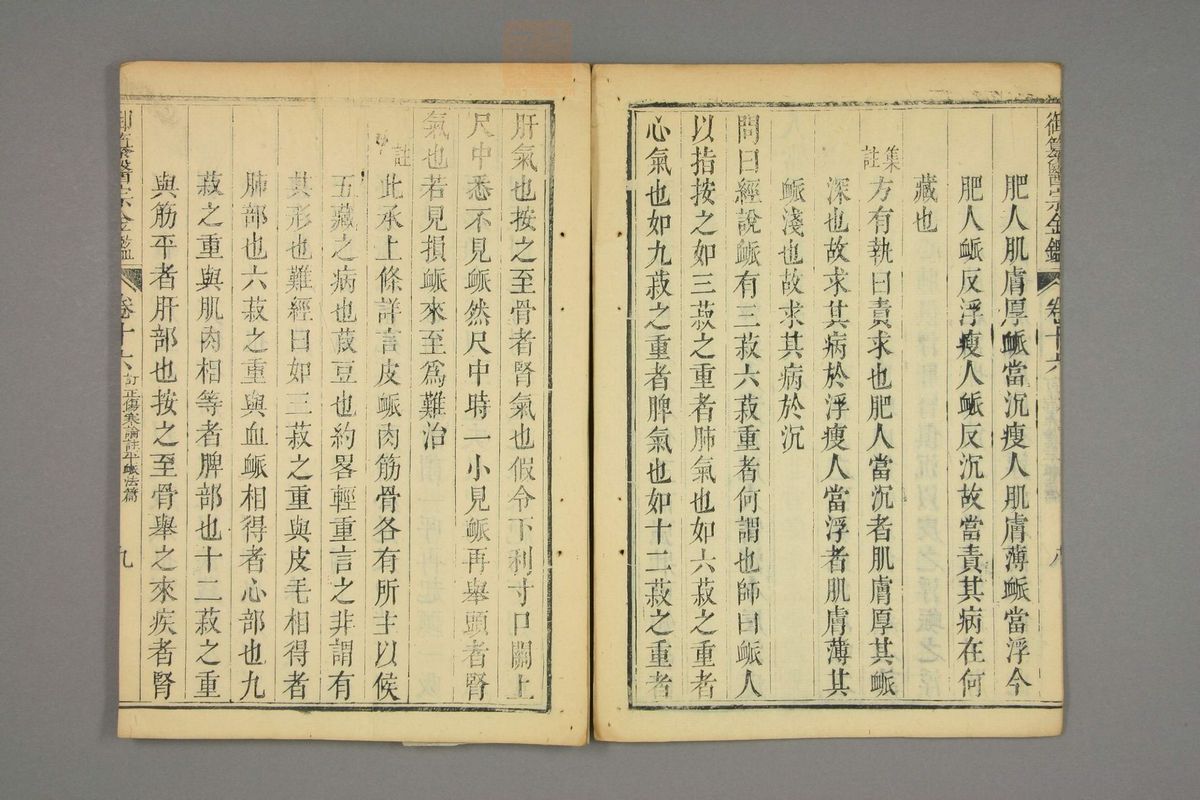 御纂醫宗金鑑 卷十六 八
肥人肌膚厚脈當沉瘦人肌膚薄脈當浮今
肥人脈反浮瘦人脈反沉故當責其病在何
藏也
集註
方有執曰責求也肥人當沉者肌膚厚其脈
深也故求其病於浮瘦人當浮者肌膚薄其
脈淺也故求其病於沉
問曰經說脈有三菽六菽重者何謂也師曰脈人
以指按之如三菽之重者肺氣也如六菽之重者
心氣也如九菽之重者脾氣也如十二菽之重者
肝氣也按之至骨者腎氣也假令下利寸口關上
尺中悉不見脈然尺中時一小見脈再舉頭者腎
氣也若見損脈來至爲難治
註
此承上條詳言皮脈肉筋骨各有所主以候
五藏之病也菽豆也約畧輕重言之非謂有
其形也難經曰如三菽之重與皮毛相得者
肺部也六菽之重與血脈相得者心部也九
菽之重與肌肉相等者脾部也十二菽之重
與筋平者肝部也按之至骨舉之來疾者腎
御纂醫宗金鑑 卷十六 訂正傷寒論註平脈法篇 九